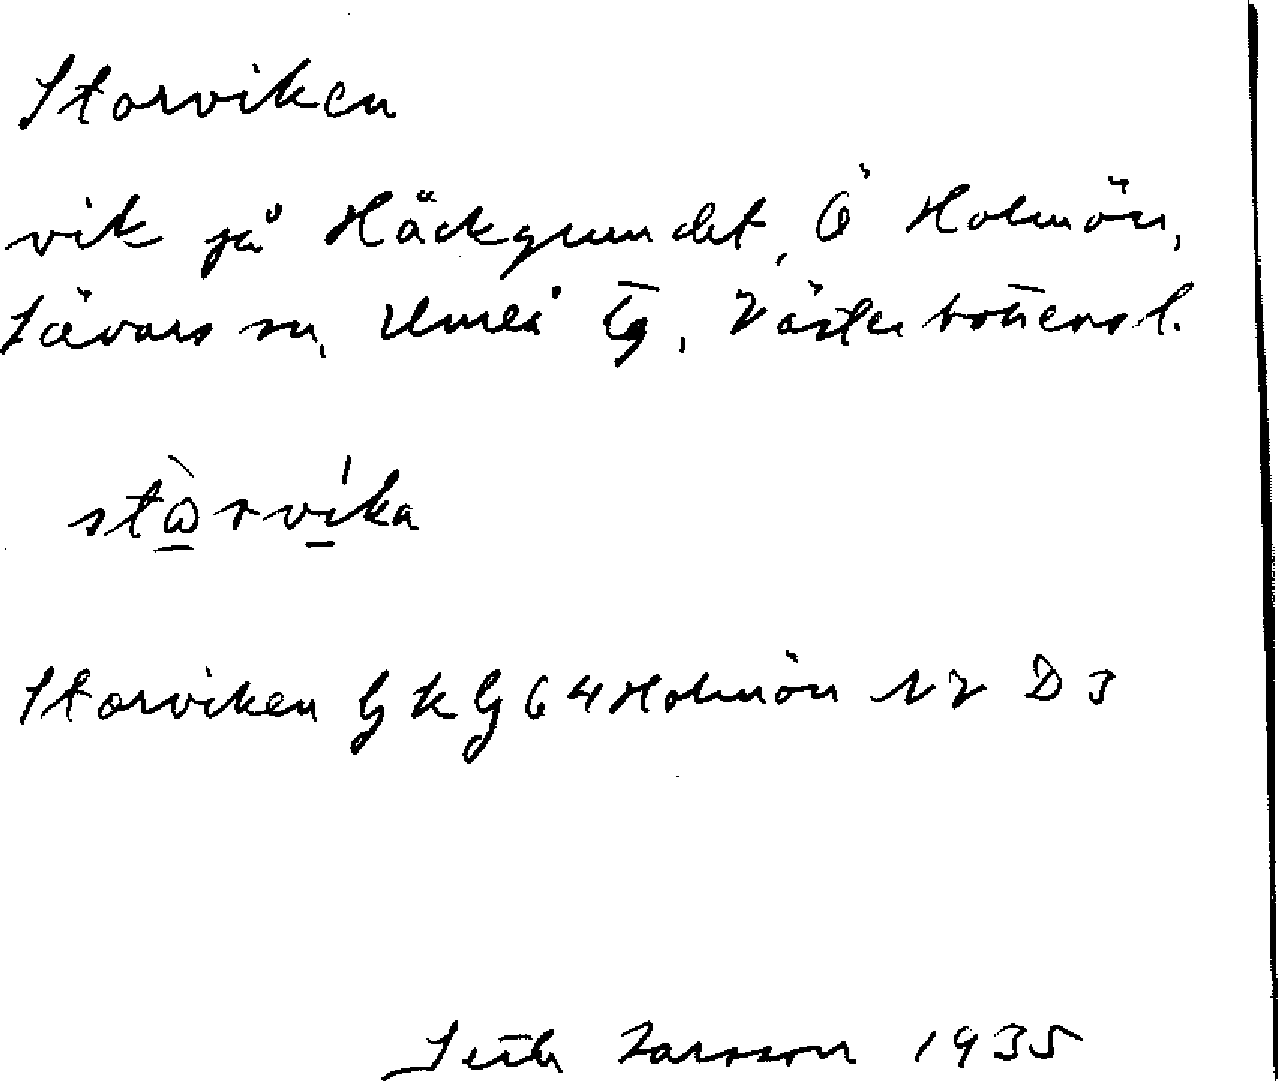 Storviken
vik på Häckgrundet, Ö Holmön,
Sävars sn, Umeå tg, Västerbottens l.
stωrvika
Storviken GKG 64 Holmön NV D 3
Seth Larsson 1935